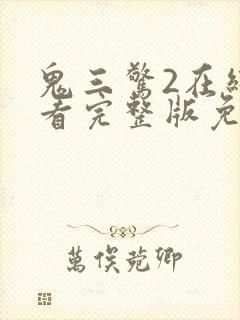 鬼三驚2在線
看完整版免
萬俟菀卿